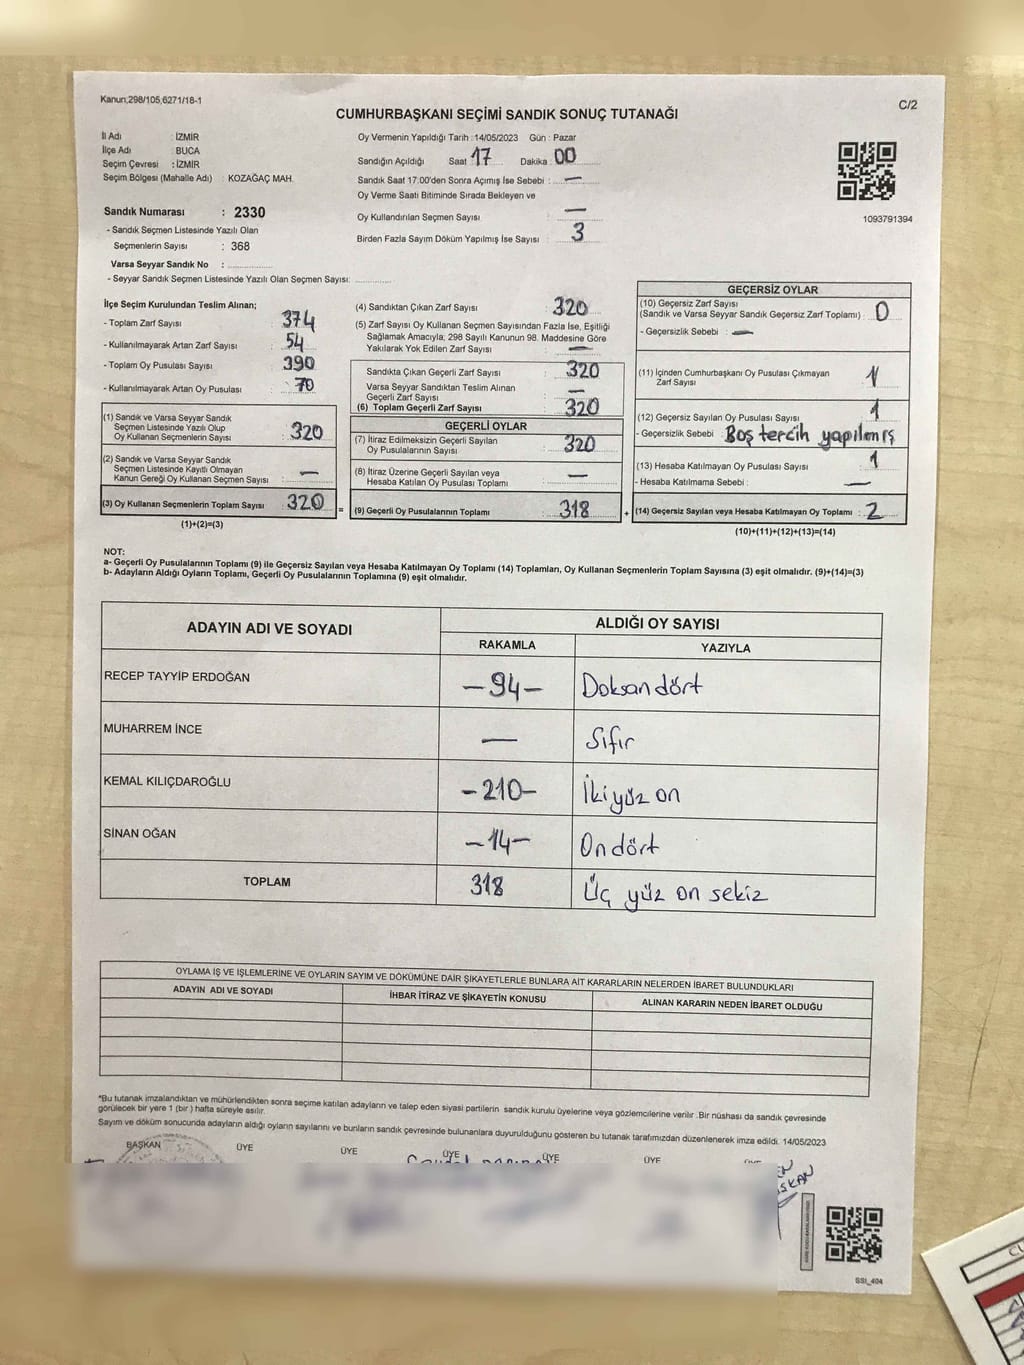 Kanun;298/105,6271/18-1
C/2
CUMHURBAŞKANI SEÇİMİ SANDIK SONUÇ TUTANAĞI
İl Adı : İZMİR
İlçe Adı : BUCA
Seçim Çevresi : İZMİR
Seçim Bölgesi (Mahalle Adı) : KOZAĞAÇ MAH.
Sandık Numarası : 2330
- Sandık Seçmen Listesinde Yazılı Olan
Seçmenlerin Sayısı : 368
Varsa Seyyar Sandık No :
- Seyyar Sandık Seçmen Listesinde Yazılı Olan Seçmen Sayısı:
Oy Vermenin Yapıldığı Tarih : 14/05/2023 Gün : Pazar
Sandığın Açıldığı Saat 17 Dakika : 00
Sandık Saat 17:00'den Sonra Açımış İse Sebebi : —
Oy Verme Saati Bitiminde Sırada Bekleyen ve
Oy Kullandırılan Seçmen Sayısı : —
Birden Fazla Sayım Döküm Yapılmış İse Sayısı : 3
1093791394
İlçe Seçim Kurulundan Teslim Alınan;
- Toplam Zarf Sayısı : 374
- Kullanılmayarak Artan Zarf Sayısı : 54
- Toplam Oy Pusulası Sayısı : 390
- Kullanılmayarak Artan Oy Pusulası : 70
(1) Sandık ve Varsa Seyyar Sandık
Seçmen Listesinde Yazılı Olup
Oy Kullanan Seçmenlerin Sayısı : 320
(2) Sandık ve Varsa Seyyar Sandık
Seçmen Listesinde Kayıtlı Olmayan
Kanun Gereği Oy Kullanan Seçmen Sayısı : —
(3) Oy Kullanan Seçmenlerin Toplam Sayısı : 320
(1)+(2)=(3)
(4) Sandıktan Çıkan Zarf Sayısı : 320
(5) Zarf Sayısı Oy Kullanan Seçmen Sayısından Fazla İse, Eşitliği
Sağlamak Amacıyla; 298 Sayılı Kanunun 98. Maddesine Göre
Yakılarak Yok Edilen Zarf Sayısı : —
Sandıkta Çıkan Geçerli Zarf Sayısı : 320
Varsa Seyyar Sandıktan Teslim Alınan
Geçerli Zarf Sayısı : —
(6) Toplam Geçerli Zarf Sayısı : 320
GEÇERLİ OYLAR
(7) İtiraz Edilmeksizin Geçerli Sayılan
Oy Pusulalarının Sayısı : 320
(8) İtiraz Üzerine Geçerli Sayılan veya
Hesaba Katılan Oy Pusulası Toplamı : —
= (9) Geçerli Oy Pusulalarının Toplamı : 318 +
GEÇERSİZ OYLAR
(10) Geçersiz Zarf Sayısı
(Sandık ve Varsa Seyyar Sandık Geçersiz Zarf Toplamı) : 0
- Geçersizlik Sebebi : —
(11) İçinden Cumhurbaşkanı Oy Pusulası Çıkmayan
Zarf Sayısı
(12) Geçersiz Sayılan Oy Pusulası Sayısı : 1
- Geçersizlik Sebebi : Boş tercih yapılmış
(13) Hesaba Katılmayan Oy Pusulası Sayısı : 1
- Hesaba Katılmama Sebebi : —
(14) Geçersiz Sayılan veya Hesaba Katılmayan Oy Toplamı : 2
(10)+(11)+(12)+(13)=(14)
NOT:
a- Geçerli Oy Pusulalarının Toplamı (9) ile Geçersiz Sayılan veya Hesaba Katılmayan Oy Toplamı (14) Toplamları, Oy Kullanan Seçmenlerin Toplam Sayısına (3) eşit olmalıdır. (9)+(14)=(3)
b- Adayların Aldığı Oyların Toplamı, Geçerli Oy Pusulalarının Toplamına (9) eşit olmalıdır.
ADAYIN ADI VE SOYADI ALDIĞI OY SAYISI
RAKAMLA YAZIYLA
RECEP TAYYİP ERDOĞAN -94- Doksan dört
MUHARREM İNCE — Sıfır
KEMAL KILIÇDAROĞLU -210- İki yüz on
SİNAN OĞAN -14- On dört
TOPLAM 318 Üç yüz on sekiz
OYLAMA İŞ VE İŞLEMLERİNE VE OYLARIN SAYIM VE DÖKÜMÜNE DAİR ŞİKAYETLERLE BUNLARA AİT KARARLARIN NELERDEN İBARET BULUNDUKLARI
ADAYIN ADI VE SOYADI İHBAR İTİRAZ VE ŞİKAYETİN KONUSU ALINAN KARARIN NEDEN İBARET OLDUĞU
*Bu tutanak imzalandıktan ve mühürlendikten sonra seçime katılan adayların ve talep eden siyasi partilerin sandık kurulu üyelerine veya gözlemcilerine verilir. Bir nüshası da sandık çevresinde
görülecek bir yere 1 (bir ) hafta süreyle asılır.
Sayım ve döküm sonucunda adayların aldığı oyların sayılarını ve bunların sandık çevresinde bulunanlara duyurulduğunu gösteren bu tutanak tarafımızdan düzenlenerek imza edildi. 14/05/2023
BAŞKAN ÜYE ÜYE ÜYE ÜYE ÜYE
SSI_404